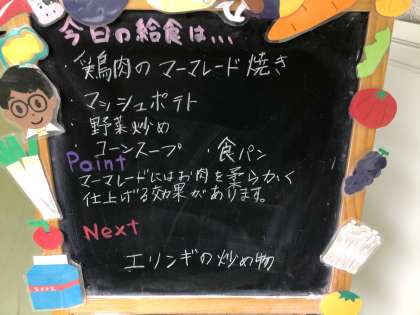 今日の給食は...
・鶏肉のマーマレード焼き
・マッシュポテト
・野菜炒め
・コーンスープ ・食パン
Point
マーマレードにはお肉を柔らかく
仕上げる効果があります。
Next
エリンギの炒め物